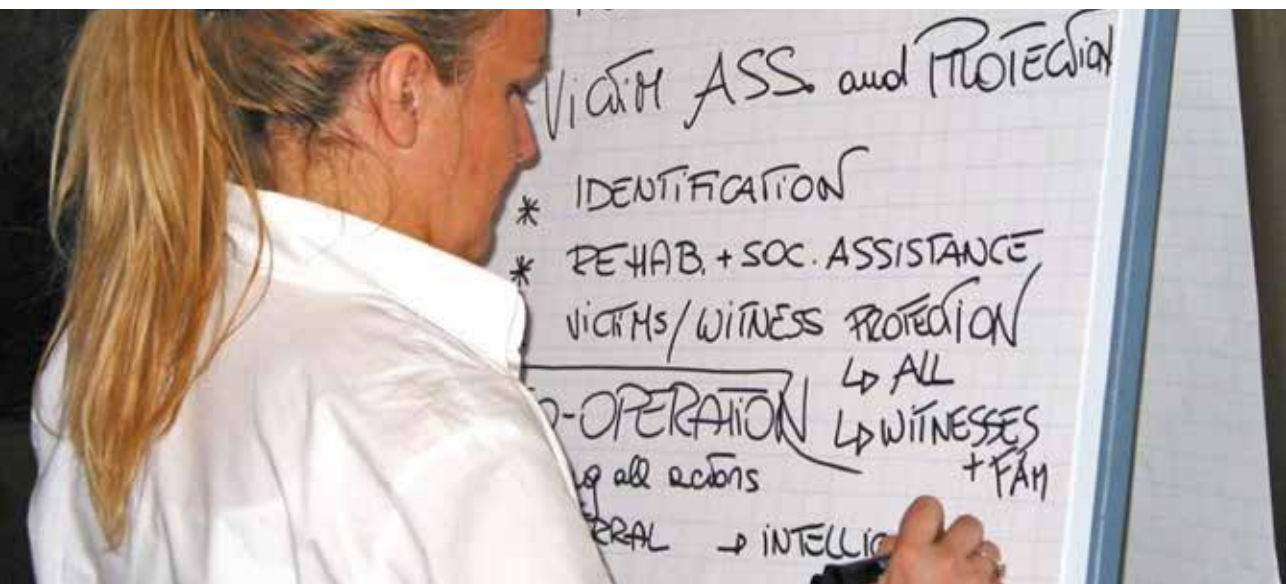 VICTIM ASS. and PROTECTION
* IDENTIFICATION
* REHAB. + SOC. ASSISTANCE
VICTIMS/WITNESS PROTECTION
↳ ALL
-OPERATION ↳ WITNESSES
+ FAM
all actors
→ INTELLIG